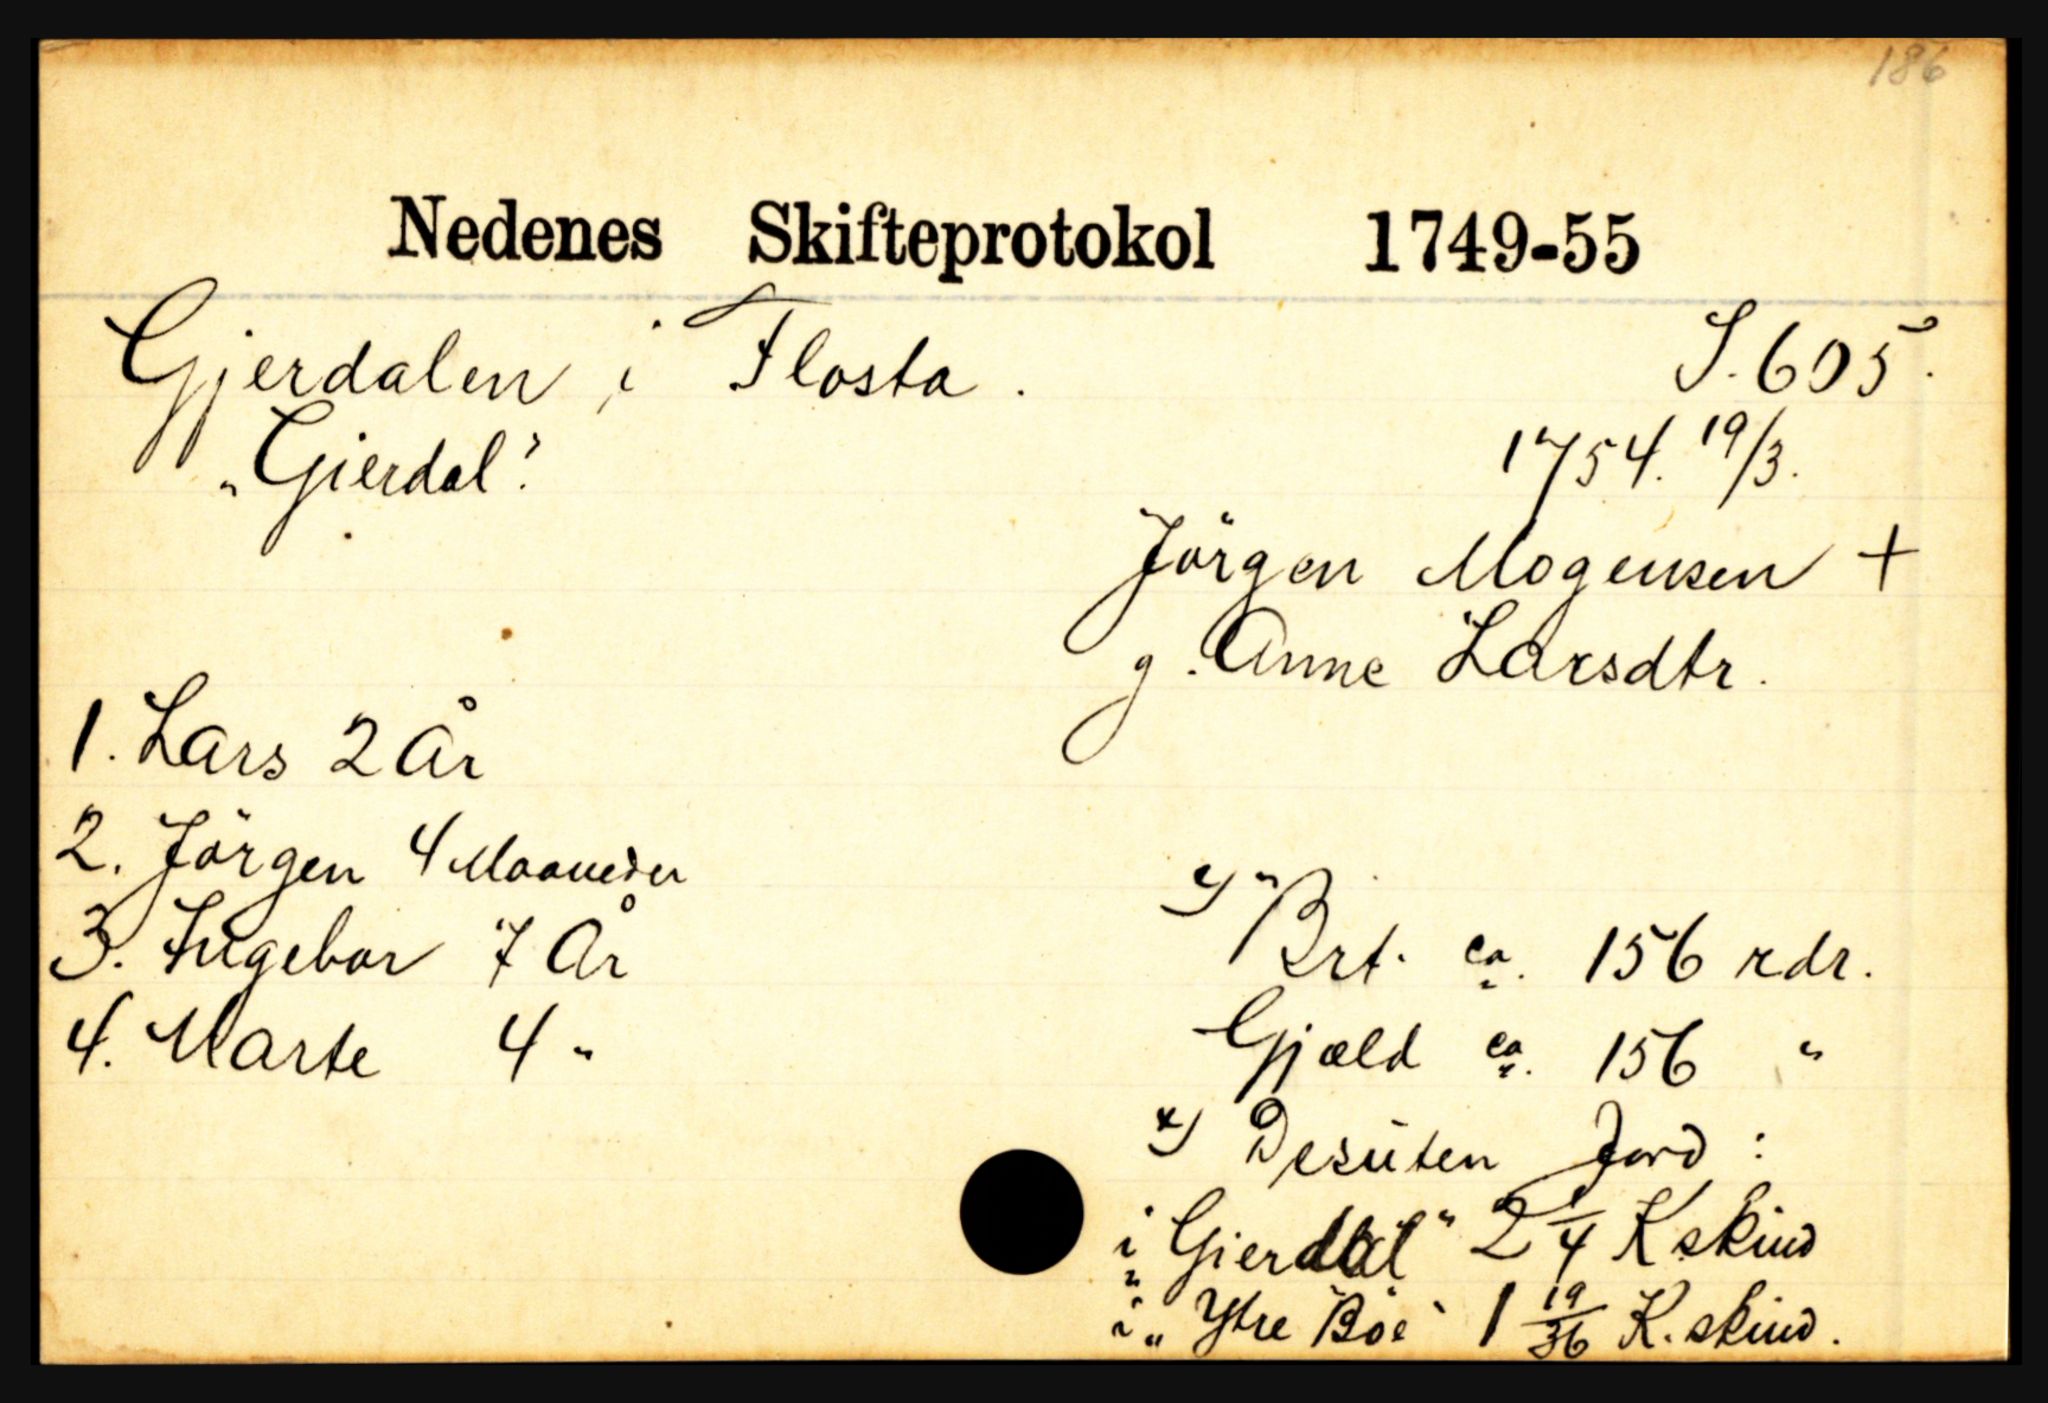 186
Nedenes Skifteprotokol 1749-55
Gjerdalen i Flosta. S. 605.
"Gierdal". 1754. 19/3.
Jörgen Mogensen +
g. Anne Larsdtr.
1. Lars 2 År
2. Jörgen 4 Maaneder
3. Ingebor 7 År
4. Marte 4 "
x) Brt. ca. 156 rdr.
Gjæld ca. 156 "
x) Desuten Jord:
i "Gierdal" 2 1/4 K skind
i "Ytre Böe" 1 19/36 K. skind.